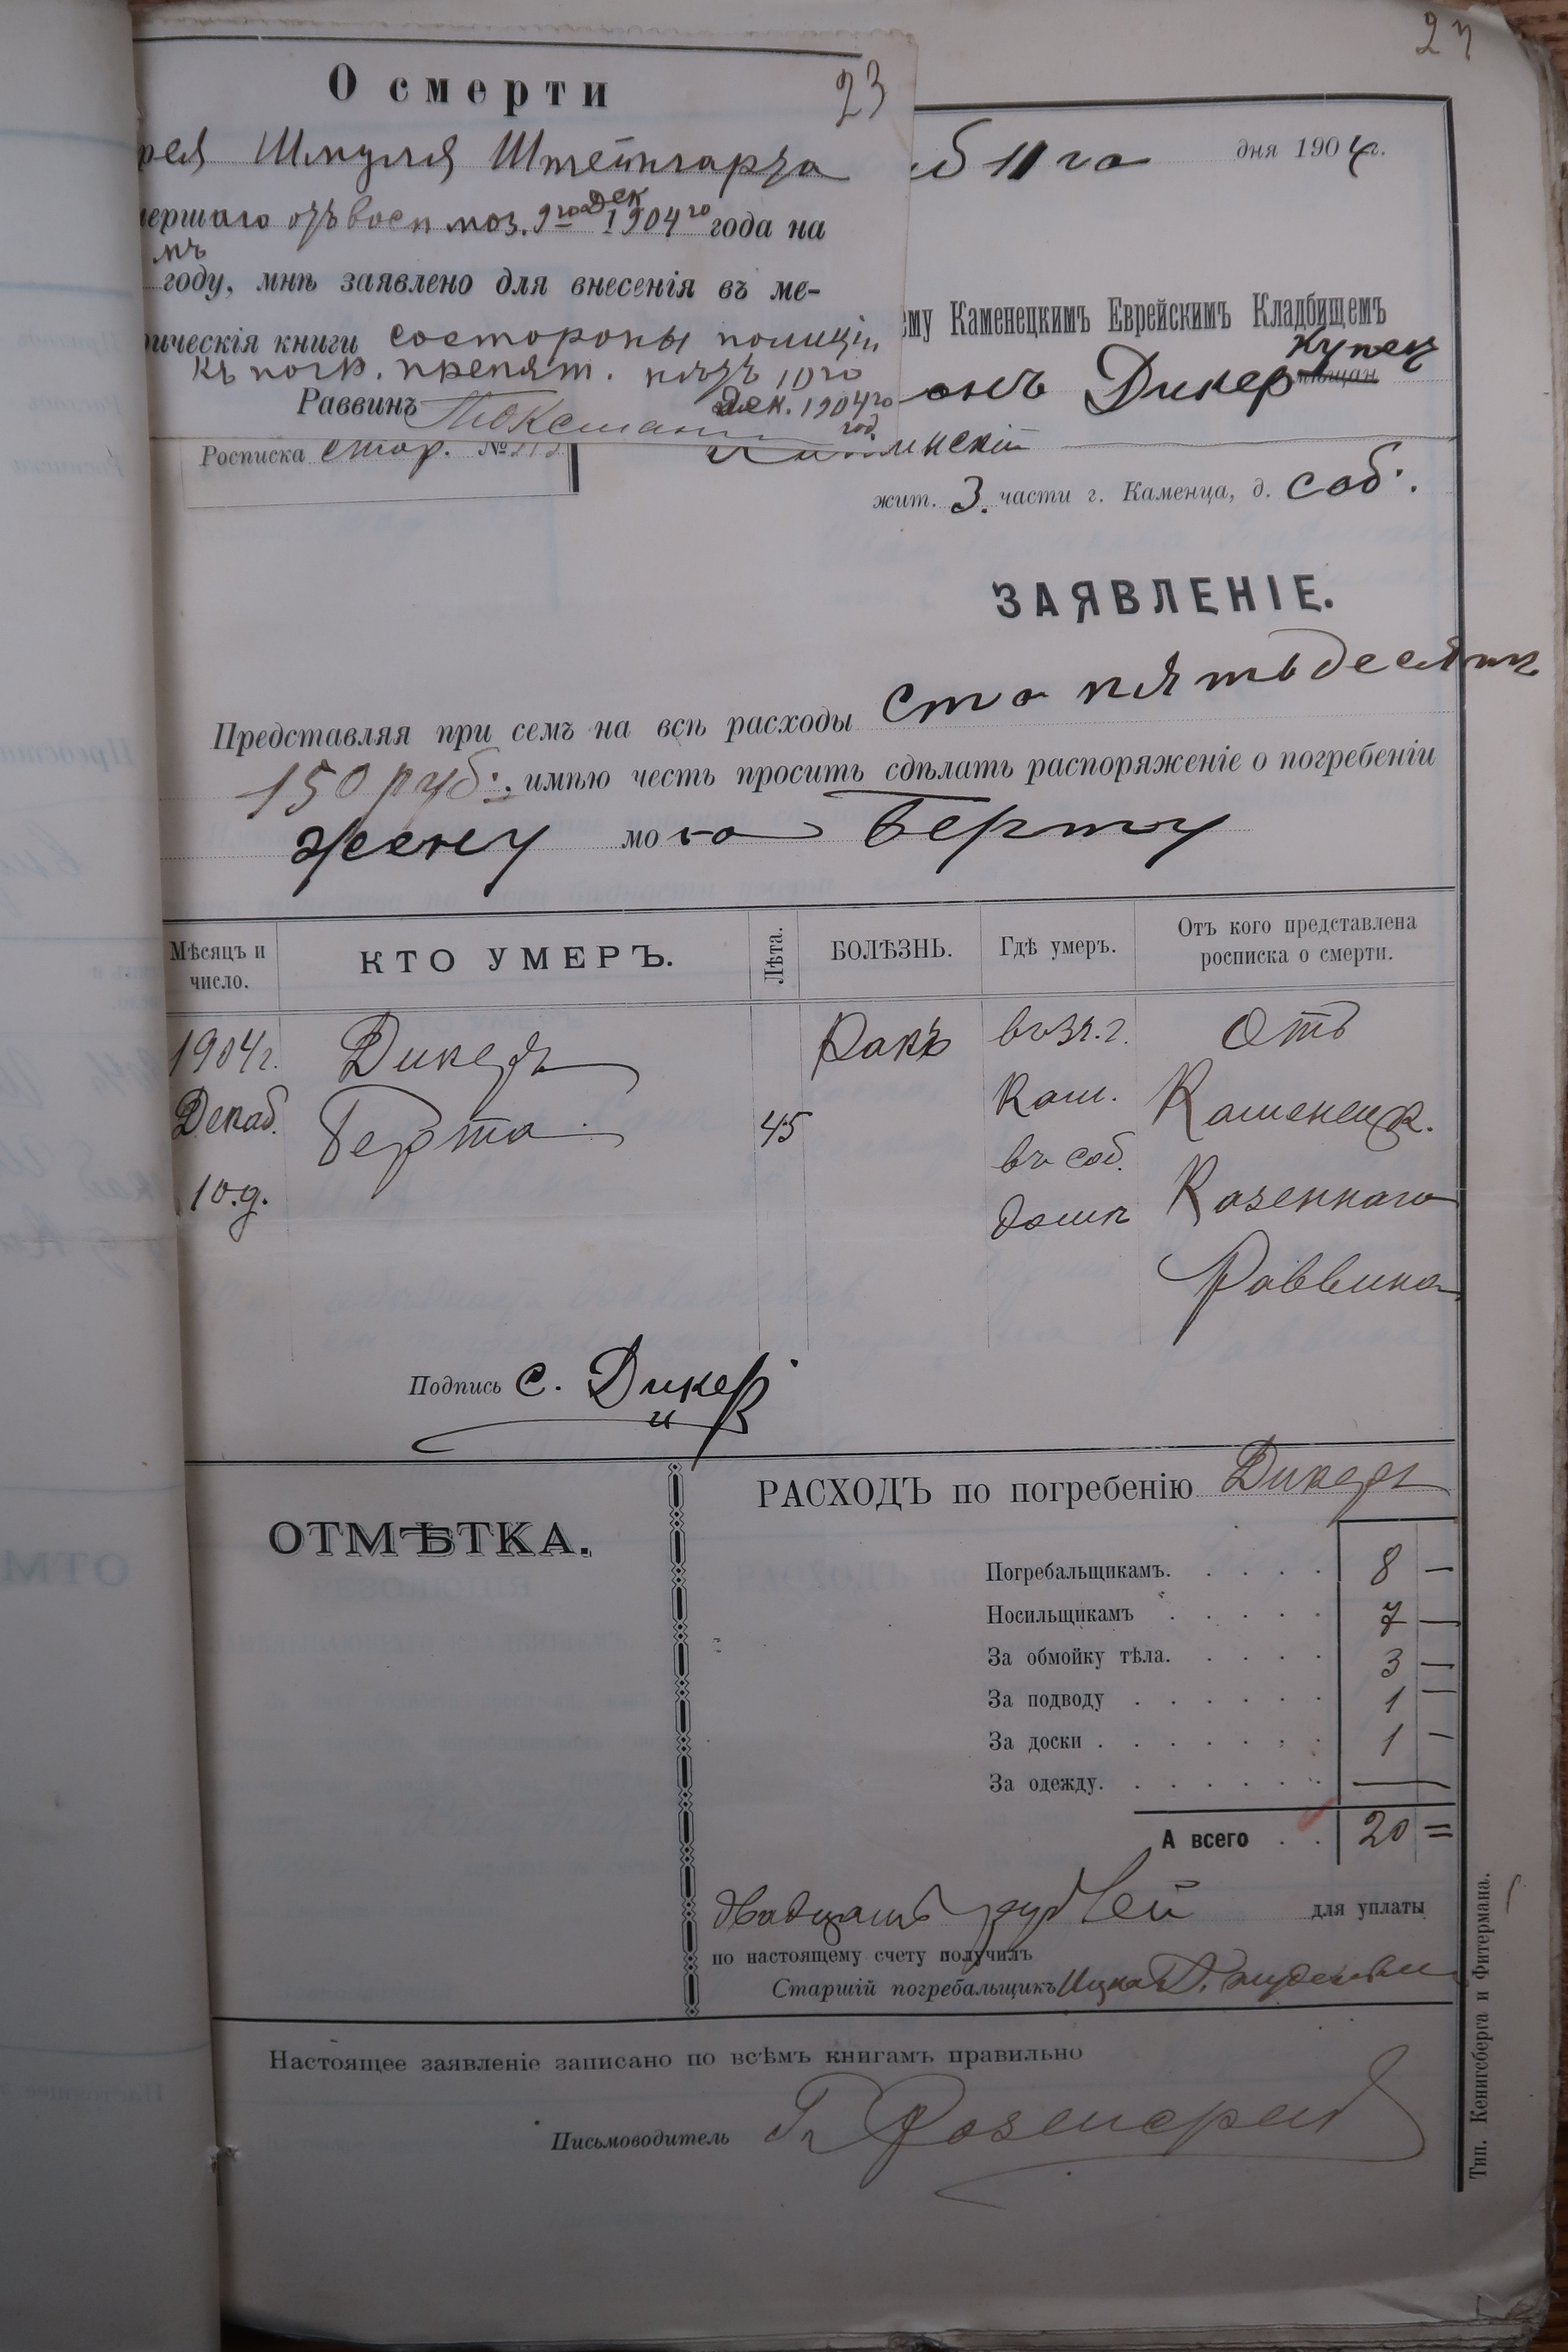 27
О смерти 23
рея Шмуля Штейнгарца
мершаго отъ восп моз. 9го Дек 1904го года на
мъ
году, мнѣ заявлено для внесенія въ ме-
рическія книги со стороны полиціи
къ погр. препят. нѣтъ 10го
Раввинъ дек. 1904го
год.
Росписка стор. №
б 11 го дня 1904 г.
ему Каменецкимъ Еврейскимъ Кладбищемъ
купец
онъ Дикер мѣщан
инскій
жит. 3. части г. Каменца, д. соб.
ЗАЯВЛЕНІЕ.
Представляя при семъ на всѣ расходы сто пятьдесятъ
150 руб. имѣю честь просить сдѣлать распоряженіе о погребеніи
жену мо Берту
Мѣсяцъ и число. КТО УМЕРЪ. Лѣта. БОЛѢЗНЬ. Гдѣ умеръ. Отъ кого представлена росписка о смерти.
1904 г. Дикеръ Ракъ въ 3ч. г. Отъ
Декаб. Берта 45 Кам. Каменецк.
10.д. въ соб. Казеннаго
домѣ Раввина
Подпись С. Дикер
ОТМѢТКА.
РАСХОДЪ по погребенію Дикеръ
Погребальщикамъ. 8 —
Носильщикамъ 7 —
За обмойку тѣла. 3 —
За подводу 1 —
За доски 1 —
За одежду. —
А всего 20 =
Двадцать рублей для уплаты
по настоящему счету получилъ
Старшій погребальщикъ Ицко
Настоящее заявленіе записано по всѣмъ книгамъ правильно
Письмоводитель
Тип. Кенигсберга и Фитермана.